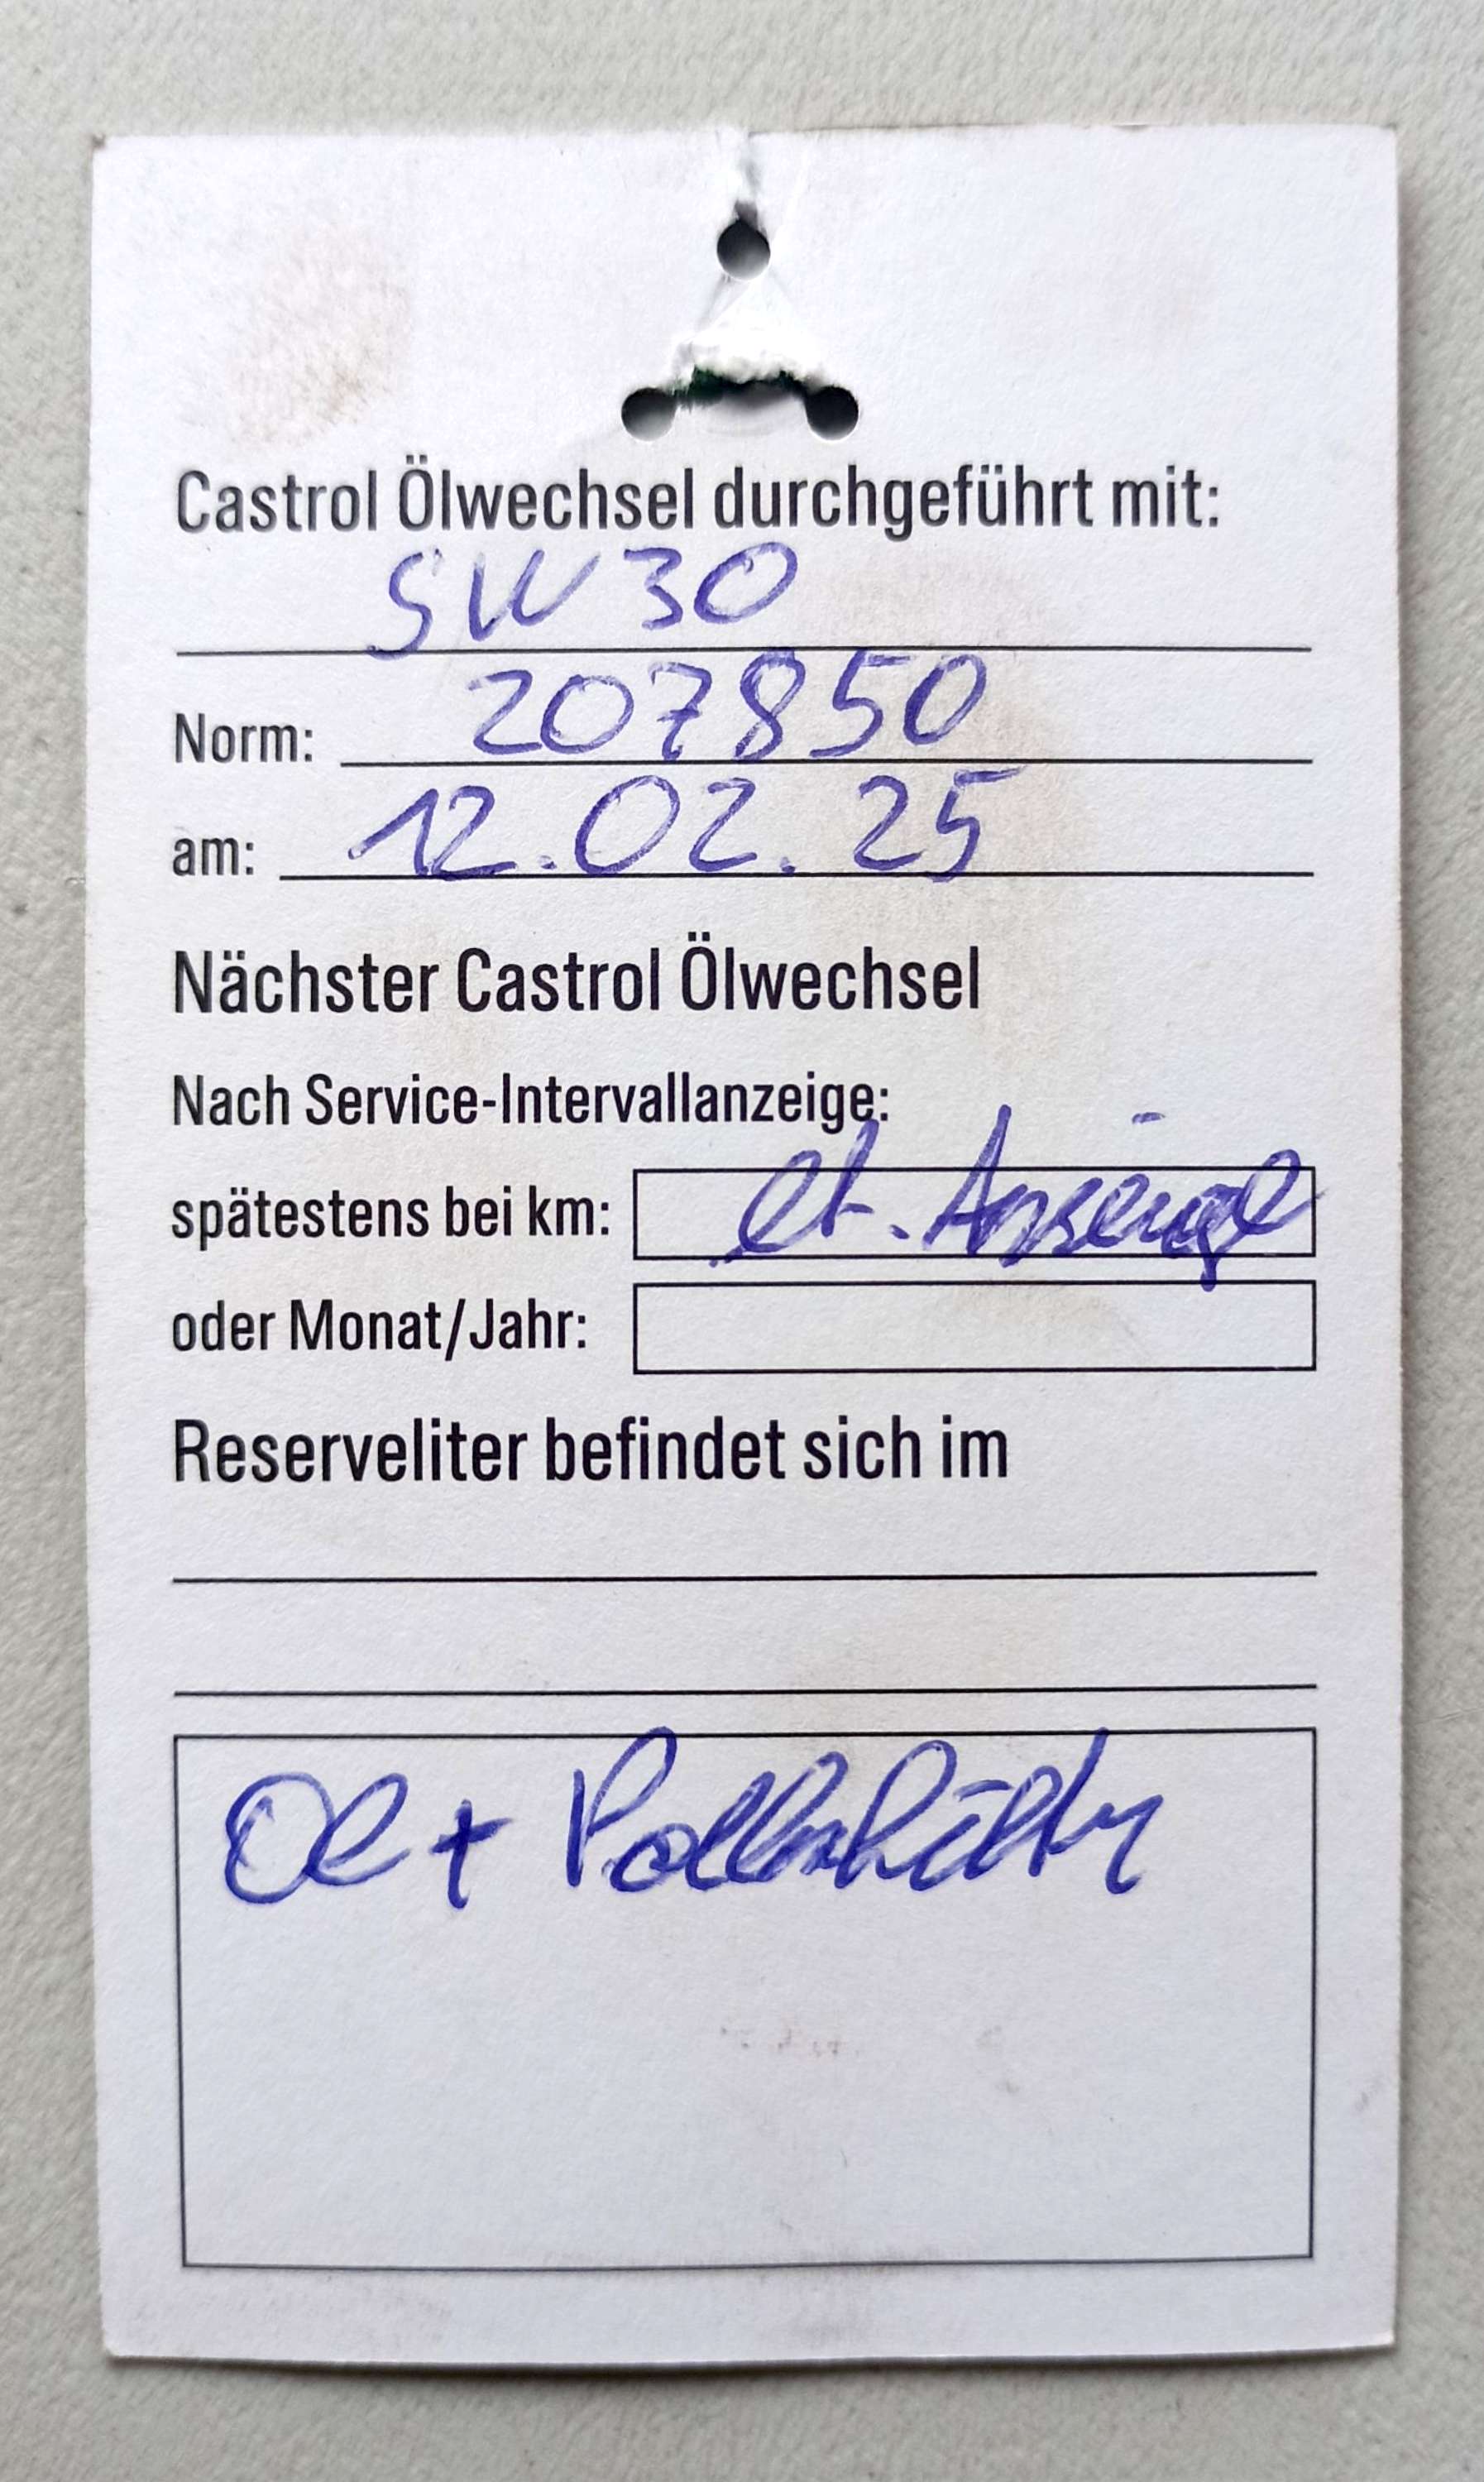 Castrol Ölwechsel durchgeführt mit:
5W30
Norm: 207850
am: 12.02.25
Nächster Castrol Ölwechsel
Nach Service-Intervallanzeige:
spätestens bei km: lt. Anzeige
oder Monat/Jahr:
Reserveliter befindet sich im
Oel + Pollenfilter